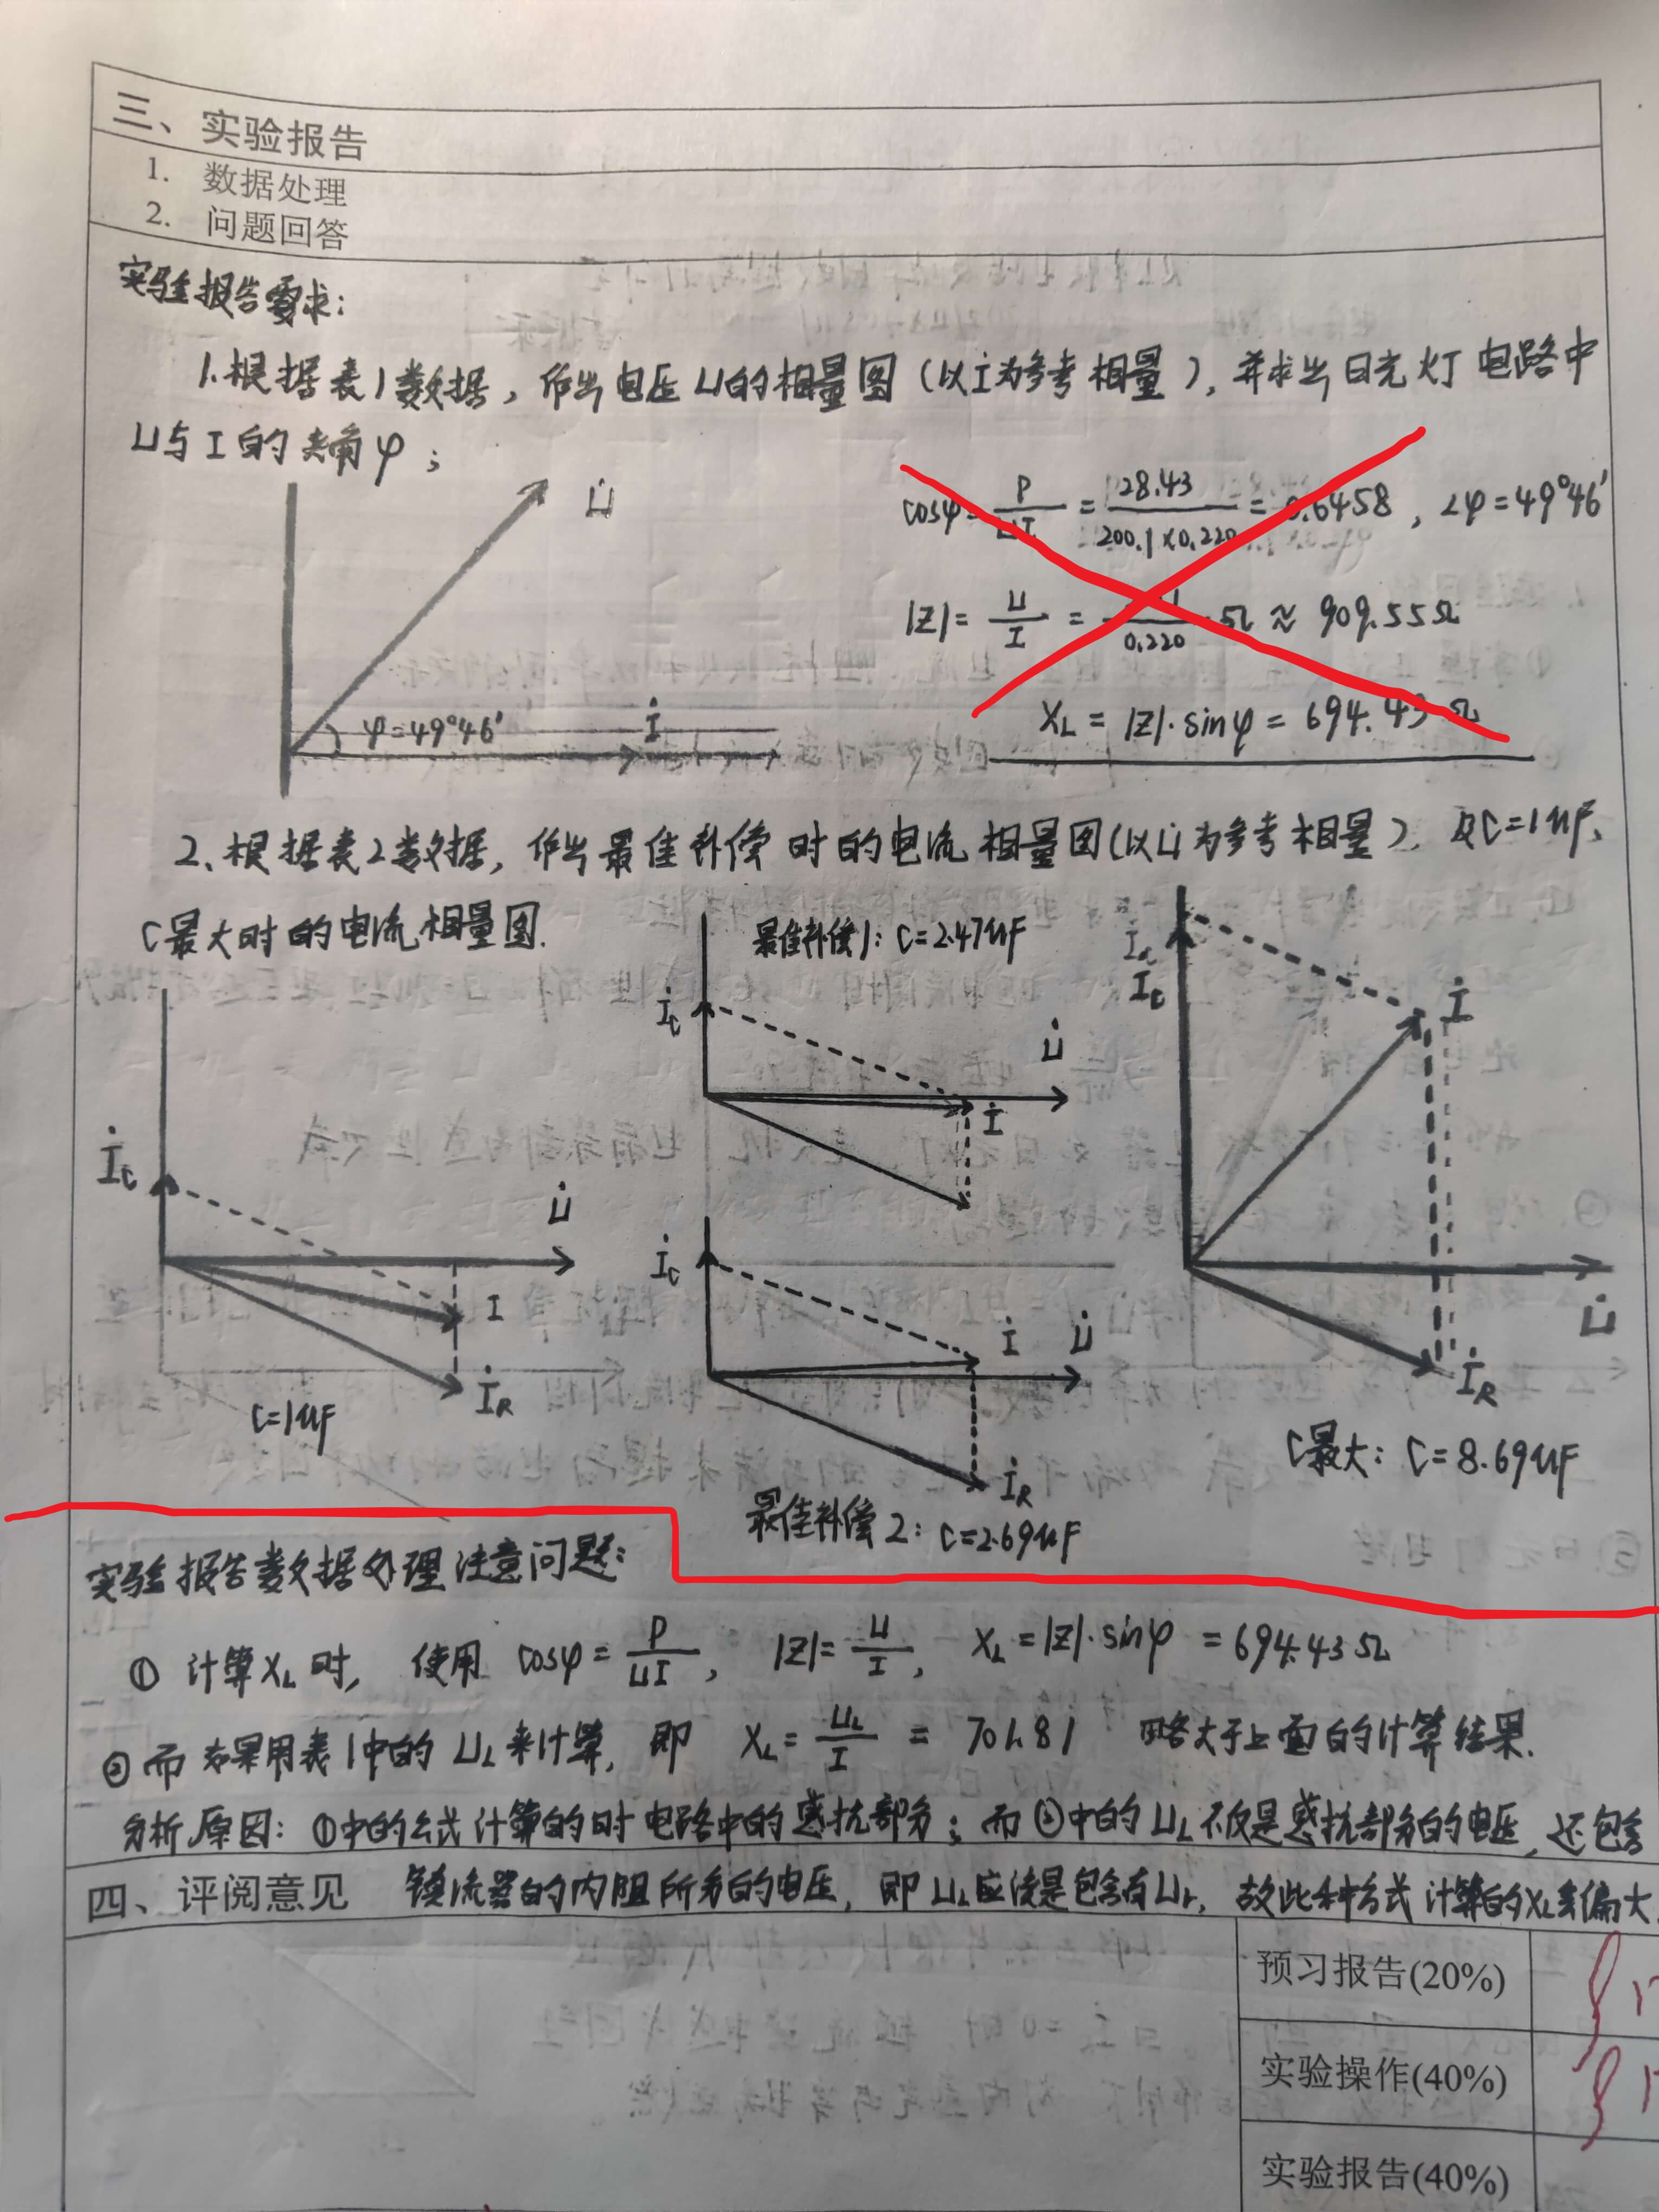 三、实验报告
1. 数据处理
2. 问题回答
实验报告要求:
1.根据表1数据,作出电压U的相量图(以İ为参考相量),并求出日光灯电路中
U与I的夹角φ;
U̇
cosφ=P/UI=28.43/200.1×0.220=0.6458,∠φ=49°46′
|Z|=U/I=/0.220 Ω≈909.55Ω
φ=49°46′ İ
XL=|Z|·sinφ=694.43Ω
2.根据表2数据,作出最佳补偿时的电流相量图(以U̇为参考相量),及C=1μF、
C最大时的电流相量图.
最佳补偿1:C=2.47μF
İC
U̇
İ
İC
IC
İ
U̇
İR
C最大:C=8.69μF
İC
U̇
I
İR
C=1μF
İC
İ U̇
İR
最佳补偿2:C=2.69μF
实验报告数据处理注意问题:
① 计算XL时,使用 cosφ=P/UI,|Z|=U/I,XL=|Z|·sinφ=694.43Ω
②而如果用表1中的UL来计算,即 XL=UL/I=701.81 略大于上面的计算结果.
分析原因:①中的公式计算的时电路中的感抗部分;而②中的UL不仅是感抗部分的电压,还包含
四、评阅意见 镇流器的内阻所分的电压,即UL应该是包含有Ur,故此种方式计算的XL会偏大.
预习报告(20%)
实验操作(40%)
实验报告(40%)